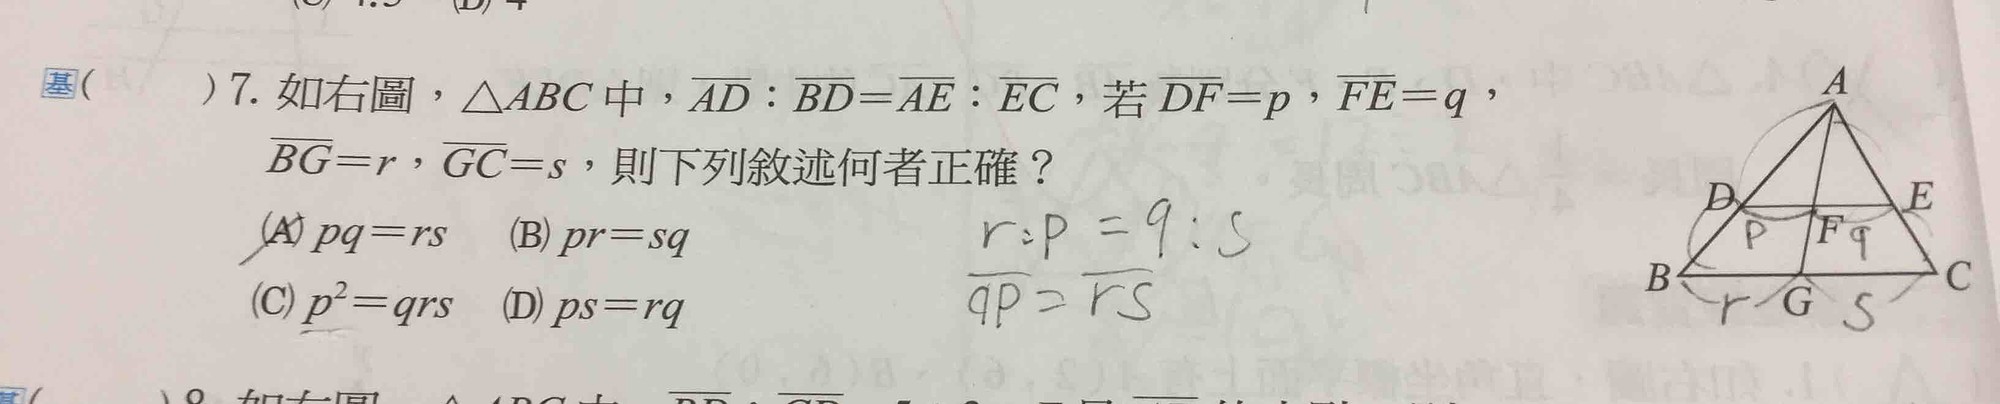 (C) 4.5 (D) 4
基( )7. 如右圖，△ABC 中，AD：BD=AE：EC，若 DF=p，FE=q，
BG=r，GC=s，則下列敘述何者正確？
(A) pq=rs (B) pr=sq
(C) p²=qrs (D) ps=rq
r:p = q:s
qp = rs
A
D E
P F q
B G C
r S